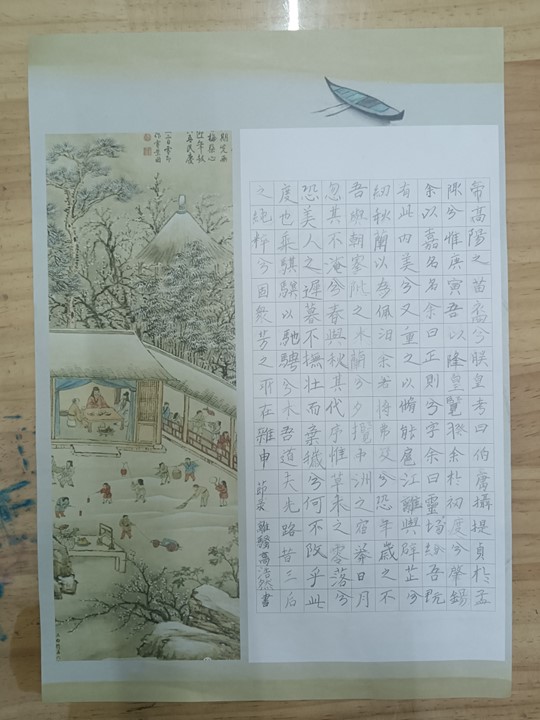 帝高陽之苗裔兮朕皇考曰伯庸攝提貞於孟
陬兮惟庚寅吾以降皇覽揆余於初度兮肇錫
余以嘉名名余曰正則兮字余曰靈均紛吾既
有此内美兮又重之以脩能扈江離與辟芷兮
紉秋蘭以為佩汨余若將弗及兮恐年歲之不
吾與朝搴阰之木蘭兮夕攬中洲之宿莽日月
忽其不淹兮春與秋其代序惟草木之零落兮
恐美人之遲暮不撫壯而棄穢兮何不改乎此
度也乘騏驥以馳騁兮来吾道夫先路昔三后
之純粹兮固衆芳之所在雜申 節录離騷高浩然書